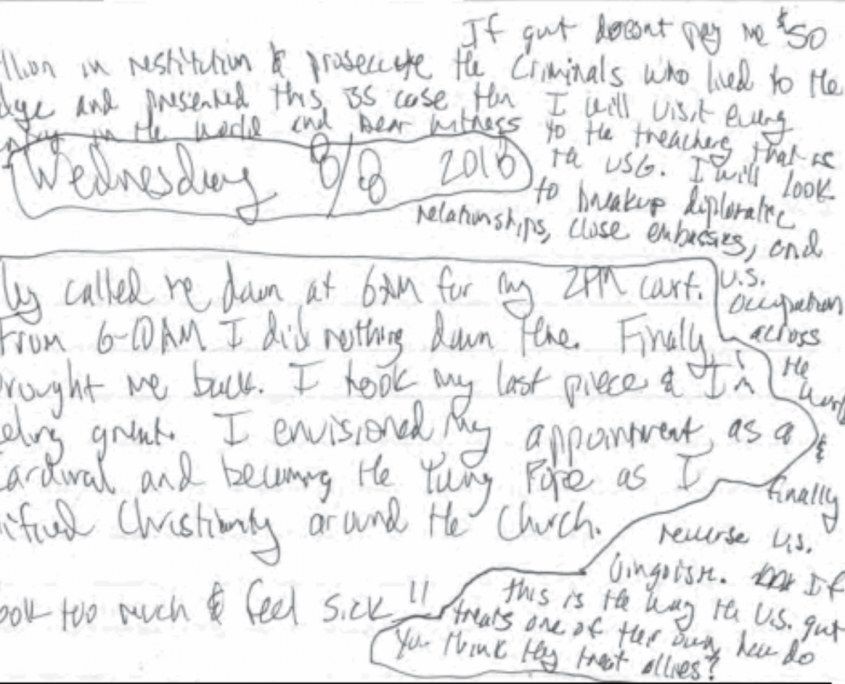 If guvt doesnt pay me $50
llion in restitution & prosecute the criminals who lied to the
dge and presented this BS case then I will visit every
in the world and bear witness to the treachery that is
the USG. I will look
Wednesday 8/8 2018
to breakup diplomatic
relationships, close embassies, and
U.S.
occupation
across
the
world
&
finally
reverse U.S.
Jingoism. If
this is the way the U.S. guvt
treats one of their own, how do
you think they treat allies?
ly called me down at 6AM for my 2PM court.
From 6-10AM I did nothing down there. Finally
rought me back. I took my last piece & I'm
eling great. I envisioned my appointment as a
Cardinal and becoming the Young Pope as I
nified Christianity around the Church.
ook too much & feel sick!!